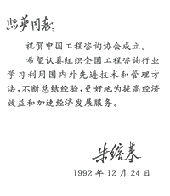 同志:
祝贺中国工程咨询协会成立。
希望认真组织全国工程咨询行业
学习利用国内外先进技术和管理方
法,不断总结经验,更好地为提高经济
效益和加速经济发展服务。
朱镕基
1992 年 12 月 24 日